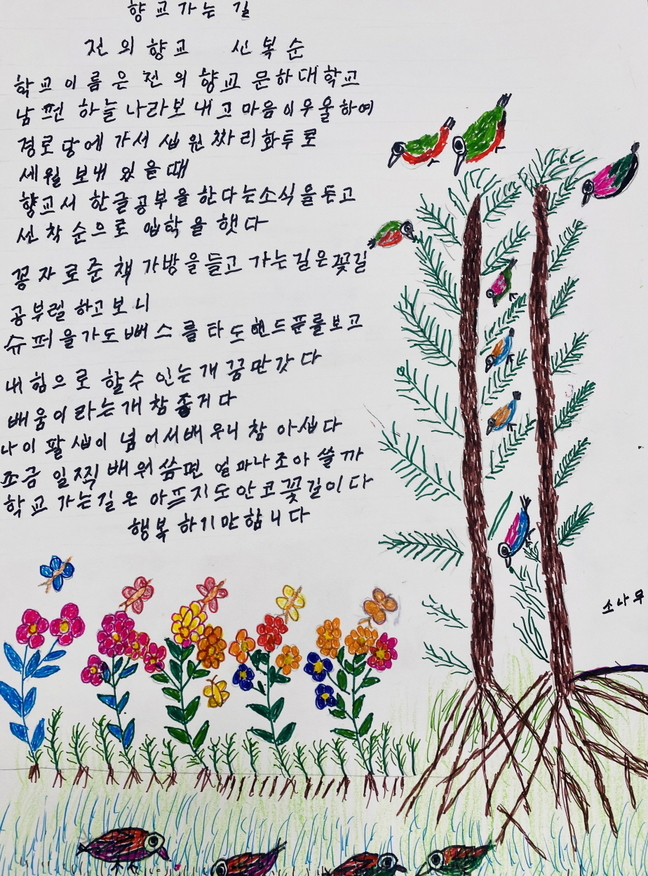 향교가는 길
전의향교 신복순
학교이름은 전의향교 문하대학교
남편 하늘나라보내고마음이우울하여
경로당에 가서 십원짜리화투로
세월 보내 있을때
향교서 한글공부을한다는소식을듣고
선착순으로 입학을 했다
꽁자로준 책가방을들고 가는길은꽃길
공부럴하고보니
슈퍼을가도뻐스를타도핸드폰를보고
내힘으로 할수 인는개 꿈만갓다
배움이라는개참좋거다
나이팔십이넘어서배우니참아쉽다
조금 일찍배워씀면 얼마나조아쓸까
학교가는길은아프지도안코꽃길이다
행복하기만합니다
소나무